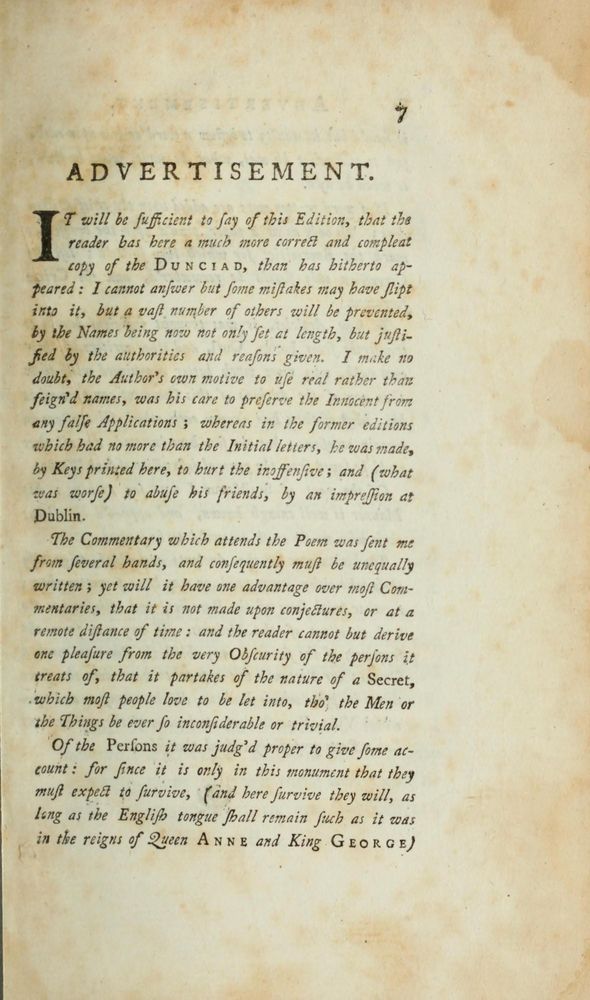 7
ADVERTISEMENT.
IT will be ſufficient to ſay of this Edition, that the
reader has here a much more correct and compleat
copy of the DUNCIAD, than has hitherto ap-
peared: I cannot anſwer but ſome miſtakes may have ſlipt
into it, but a vaſt number of others will be prevented,
by the Names being now not only ſet at length, but juſti-
fied by the authorities and reaſons given. I make no
doubt, the Author's own motive to uſe real rather than
feign'd names, was his care to preſerve the Innocent from
any falſe Applications; whereas in the former editions
which had no more than the Initial letters, he was made,
by Keys printed here, to hurt the inoffenſive; and (what
was worſe) to abuſe his friends, by an impreſſion at
Dublin.
The Commentary which attends the Poem was ſent me
from ſeveral hands, and conſequently muſt be unequally
written; yet will it have one advantage over moſt Com-
mentaries, that it is not made upon conjectures, or at a
remote diſtance of time: and the reader cannot but derive
one pleaſure from the very Obſcurity of the perſons it
treats of, that it partakes of the nature of a Secret,
which moſt people love to be let into, tho' the Men or
the Things be ever ſo inconſiderable or trivial.
Of the Perſons it was judg'd proper to give ſome ac-
count: for ſince it is only in this monument that they
muſt expect to ſurvive, (and here ſurvive they will, as
long as the Engliſh tongue ſhall remain ſuch as it was
in the reigns of Queen ANNE and King GEORGE)